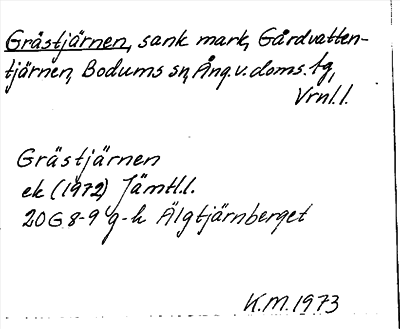 Gråstjärnen, sank mark, Gårdvatten-
tjärnen, Bodums sn, Ång. v. doms. tg,
Vrnl. l.
Grästjärnen
ek (1972) Jämtl. l.
20G 8-9 g-h Älgtjärnberget
K.M. 1973